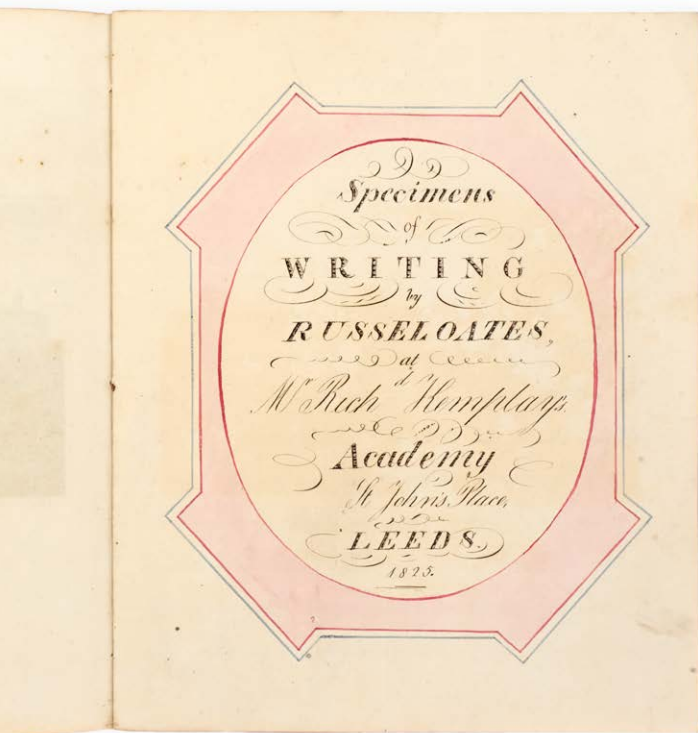 Specimens
of
WRITING
by
RUSSEL OATES,
at
Mr. Richd. Hemplay's
Academy
St. John's Place,
LEEDS.
1825.